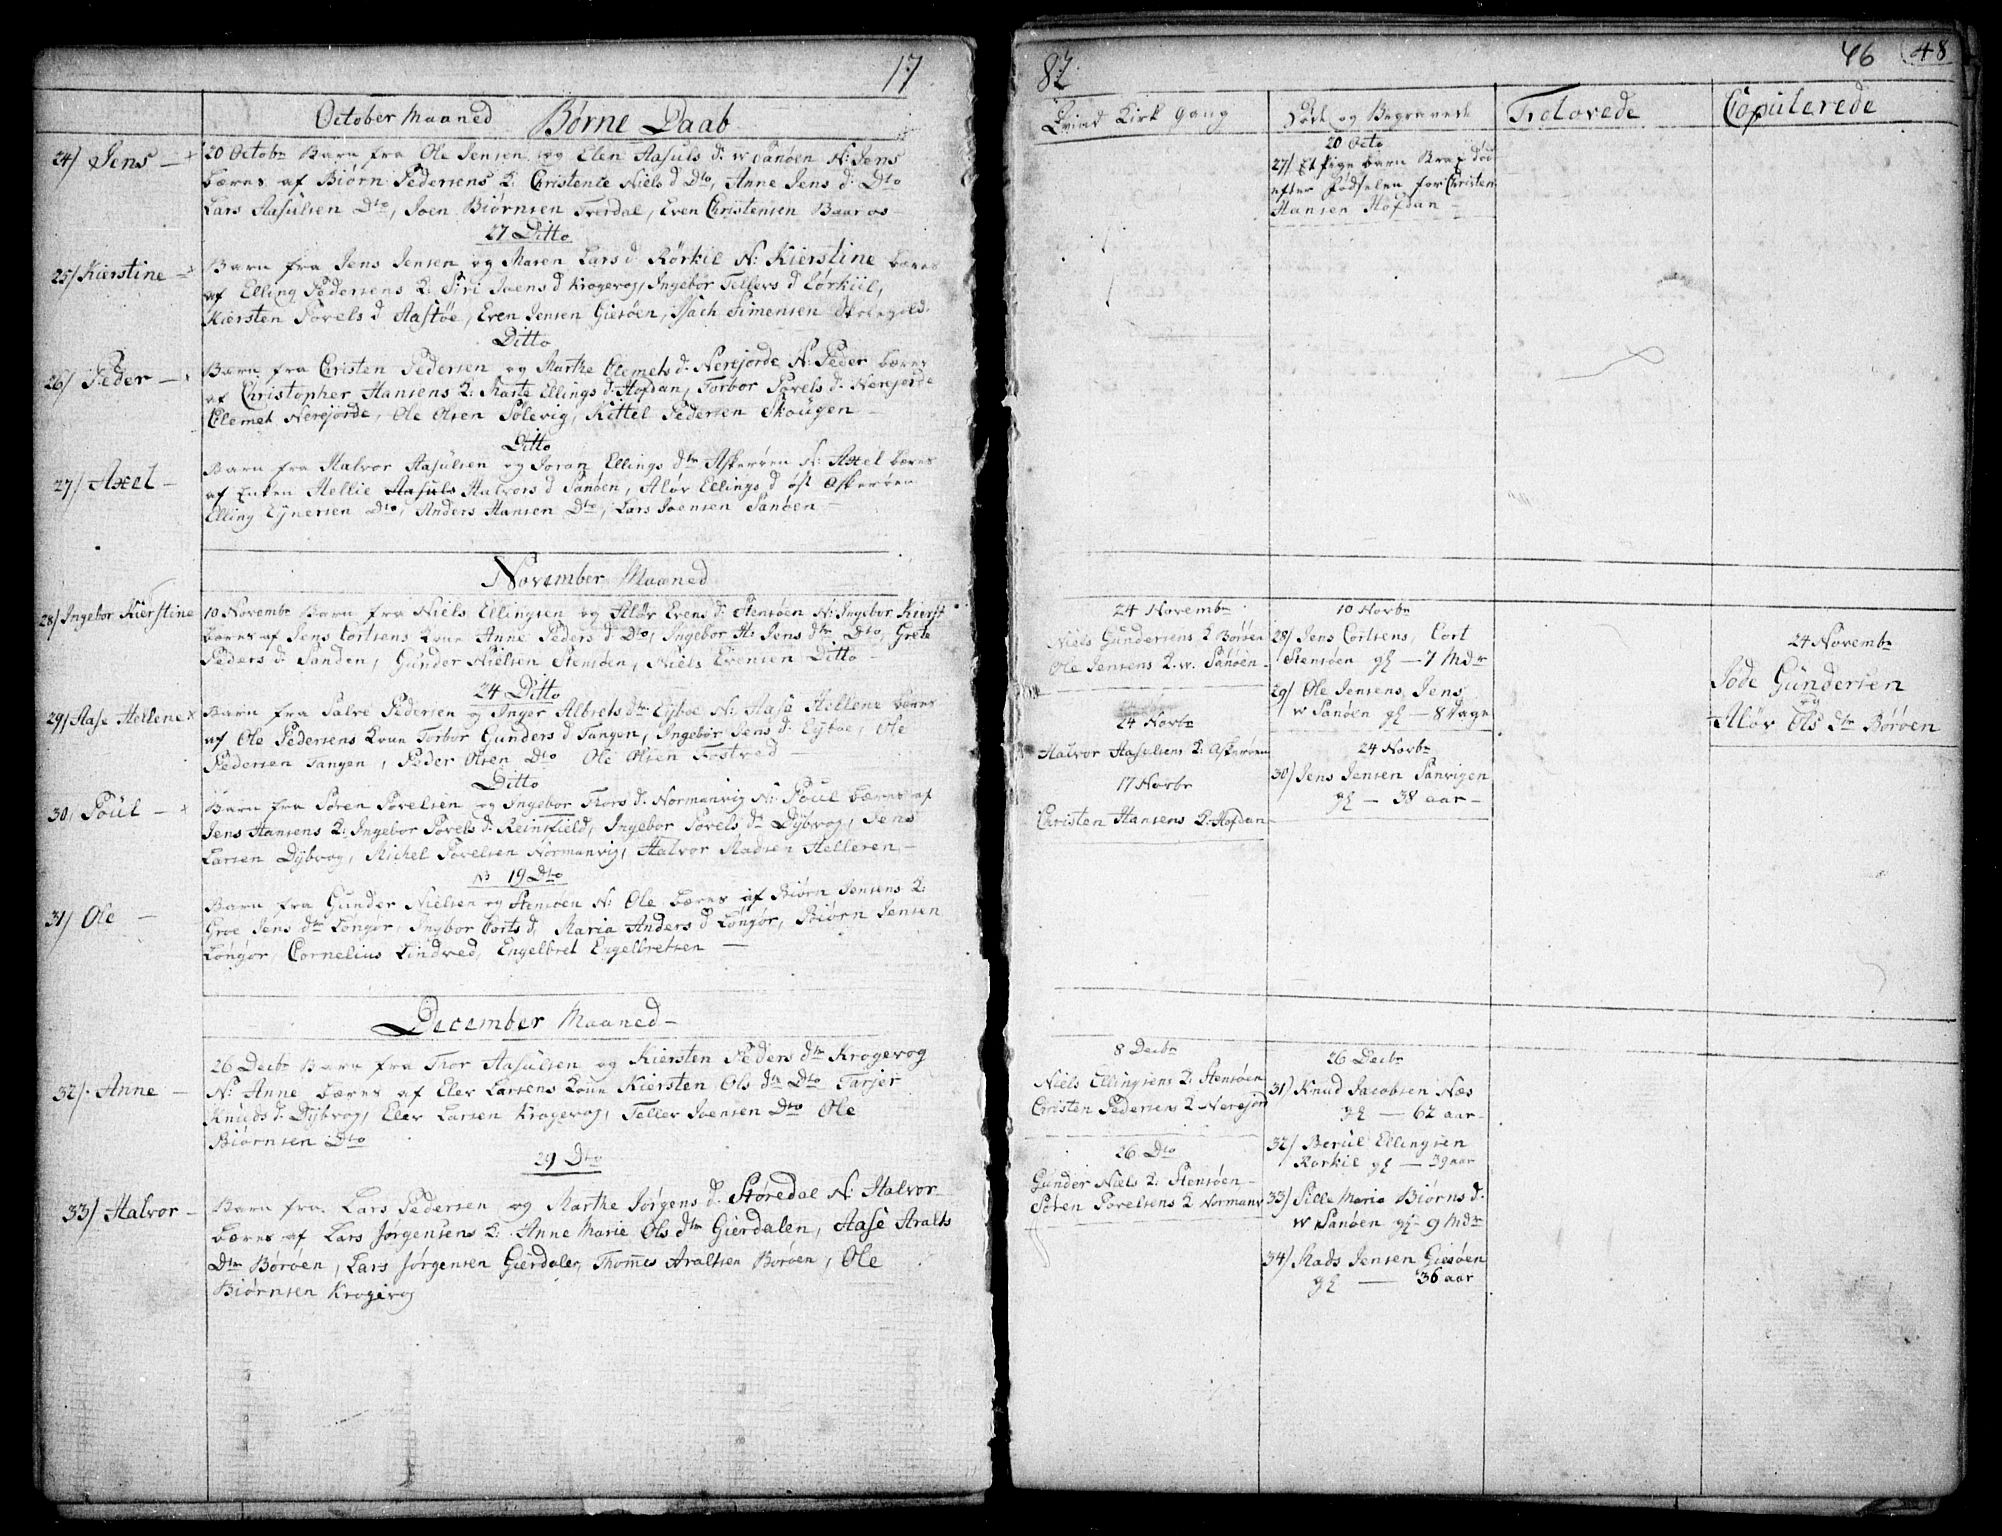 17
October Maaned Børne Daab
24/ Jens —
20 Octobr Barn fra Ole Jensen og Elen Aasuls d. w Sanøen N: Jens
bæres af Biørn Pedersens K: Christence Niels d Dto, Anne Jens d. Dto
Lars Aasulsen Dto, Joen Biørnsen Tverdal, Even Christensen Baaros
27 Ditto
25/ Kierstine —
Barn fra Jens Jensen og Maren Lars d. Rørkil N: Kierstine bæres
af Elling Pedersens K: Siri Joens d Krogevog, Ingebor Tellevs d Rørkiil,
Kiersten Povels d Aastøe, Even Jensen Giesøen, Isach Simensen
Ditto
26/ Peder —
Barn fra Christen Pedersen og Marthe Clemets d. Nerejorde N: Peder bæres
af Christopher Hansens K: Marte Ellings d. Hofdan, Torbor Povels d. Nerejorde
Clemet Nerejorde, Ole Olsen Sølevig, Kittel Pedersen Skougen —
Ditto
27/ Axel —
Barn fra Halvor Aasulsen og Joran Ellings dtr Askerøen N: Axel bæres
af Enken Hellie Aasuls Halvors d Sanøen, Aløv Ellings d øst Askerøen
Elling Eynersen Dto, Anders Hansen Dto, Lars Joensen Sanøen —
November Maaned
28/ Ingebor Kierstine
10 Novembr Barn fra Niels Ellingsen og Aløv Evens d. Stensøen N: Ingebor Kierst
bæres af Jens Cortsens Kone Anne Peders d Dto, Ingebor M: Jens dtr Dto, Grete
Peders d. Sanden, Gunder Nielsen Stensøen, Niels Evensen Ditto —
24 Ditto
29/ Aase Hellene
Barn fra Salve Pedersen og Inger Albrets dtr Eyboe N: Aase Hellene bæres
af Ole Pedersens Kone Torbor Gunders d Tangen, Ingebor Jens d. Eyboe, Ole
Pedersen Tangen, Peder Olsen Dto Ole Olsen Fostved —
Ditto
30/ Poul —
Barn fra Søren Povelsen og Ingebor Thors d. Normanvig N: Poul bæres af
Jens Hansens K: Ingebor Povels d. Reinsfield, Ingebor Povels dr Dybvog, Jens
Larsen Dybvog, Michel Povelsen Normanvig, Halvor Madsen Helleren —
19 Dto
31/ Ole —
Barn fra Gunder Nielsen og Stensøen N: Ole bæres af Biørn Jensens K:
Groe Jens dtr Løngør, Ingbor Corts d, Maria Anders d Løngør, Biørn Jensen
Løngør, Cornelius Lindved, Engelbret Engelbretsen —
December Maaned —
32/ Anne —
26 Decbr Barn fra Thor Aasulsen og Kiersten Peders dtr Krogevog
N: Anne bæres af Elev Larsens Kone Kiersten Ols dtr Dto Tarjer
Knuds d. Dybvog, Elev Larsen Krogevog, Tellev Joensen Dto Ole
Biørnsen Dto
29 Dto
33/ Halvor —
Barn fra Lars Pedersen og Marthe Jørgens d. Støredal N: Halvor
bæres af Lars Jørgensens K: Anne Marie Ols dtr Gierdalen, Aase Aralts
Dtr Børøen, Lars Jørgensen Gierdalen, Thomes Araltsen Børøen, Ole
Biørnsen Krogevog
87
46 48
Qvind Kirk gang
Døde og Begravede
Trolovede
Copulerede
20 Octo
27/ Et Pige barn Strax død
efter Fødselen for Christen
Hansen Hofdan —
24 Novembr
Niels Gundersens K Børøen
Ole Jensens K. w. Sanøen —
24 Novbr
Halvor Aasulsens K: Askerøen
17 Novbr
Christen Hansens K: Hofdan
10 Novbr
28/ Jens Cortsens, Cort
Stensøen gl — 7 Mdr
29/ Ole Jensens, Jens
w Sanøen gl — 8 Dage
24 Novbr
30/ Jens Jensen Sanvigen
gl — 38 aar —
24 Novembr
Sode Gundersen
og
Aløv Ols dtr Børøen
8 Decbr
Niels Ellingsens K: Stensøen
Christen Pedersens K Nerejor
26 Dto
Gunder Niels K: Stensøen —
Søren Povelsens K Normanv
26 Decbr
31/ Knud Jacobsen Næs
gl — 62 aar —
32/ Berul Ellingsen
Rørkil gl — 39 aar
33/ Sille Maria Biørns d.
w Sanøen gl — 9 Mdr
34/ Mads Jensen Giesøen
gl — 36 aar